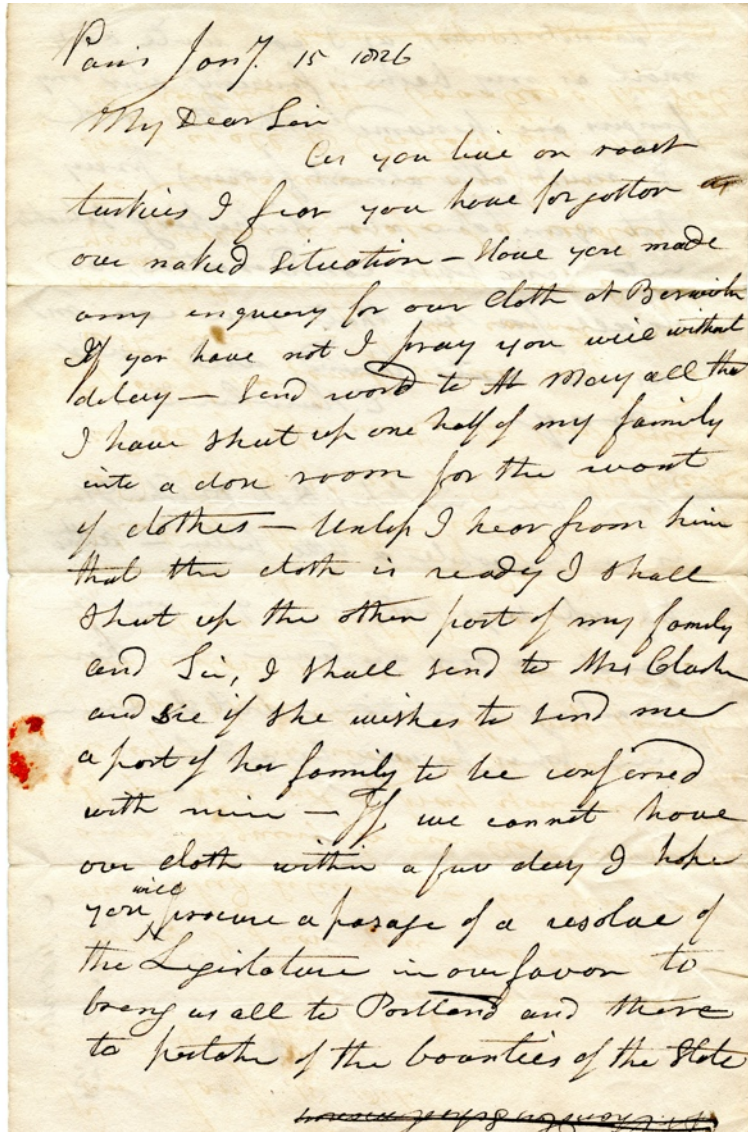 Paris Jany. 15 1826
My Dear Sir
As you live on roast
turkies I fear you have forgotton
our naked situation – Have you made
any enquery for our Cloth at Berwick
If you have not I pray you will without
delay – Send word to that
I have shut up one half of my family
into a close room for the want
of clothes – Unless I hear from him
that the cloth is ready I shall
shut up the other part of my family
and Sir, I shall send to Mrs Clark
and see if she wishes to send me
a part of her family to be confined
with mine – If we cannot have
our cloth within a few days I hope
you will procure a passage of a resolve of
the Legislature in our favor to
breng us all to Portland and there
to partake of the bounties of the State